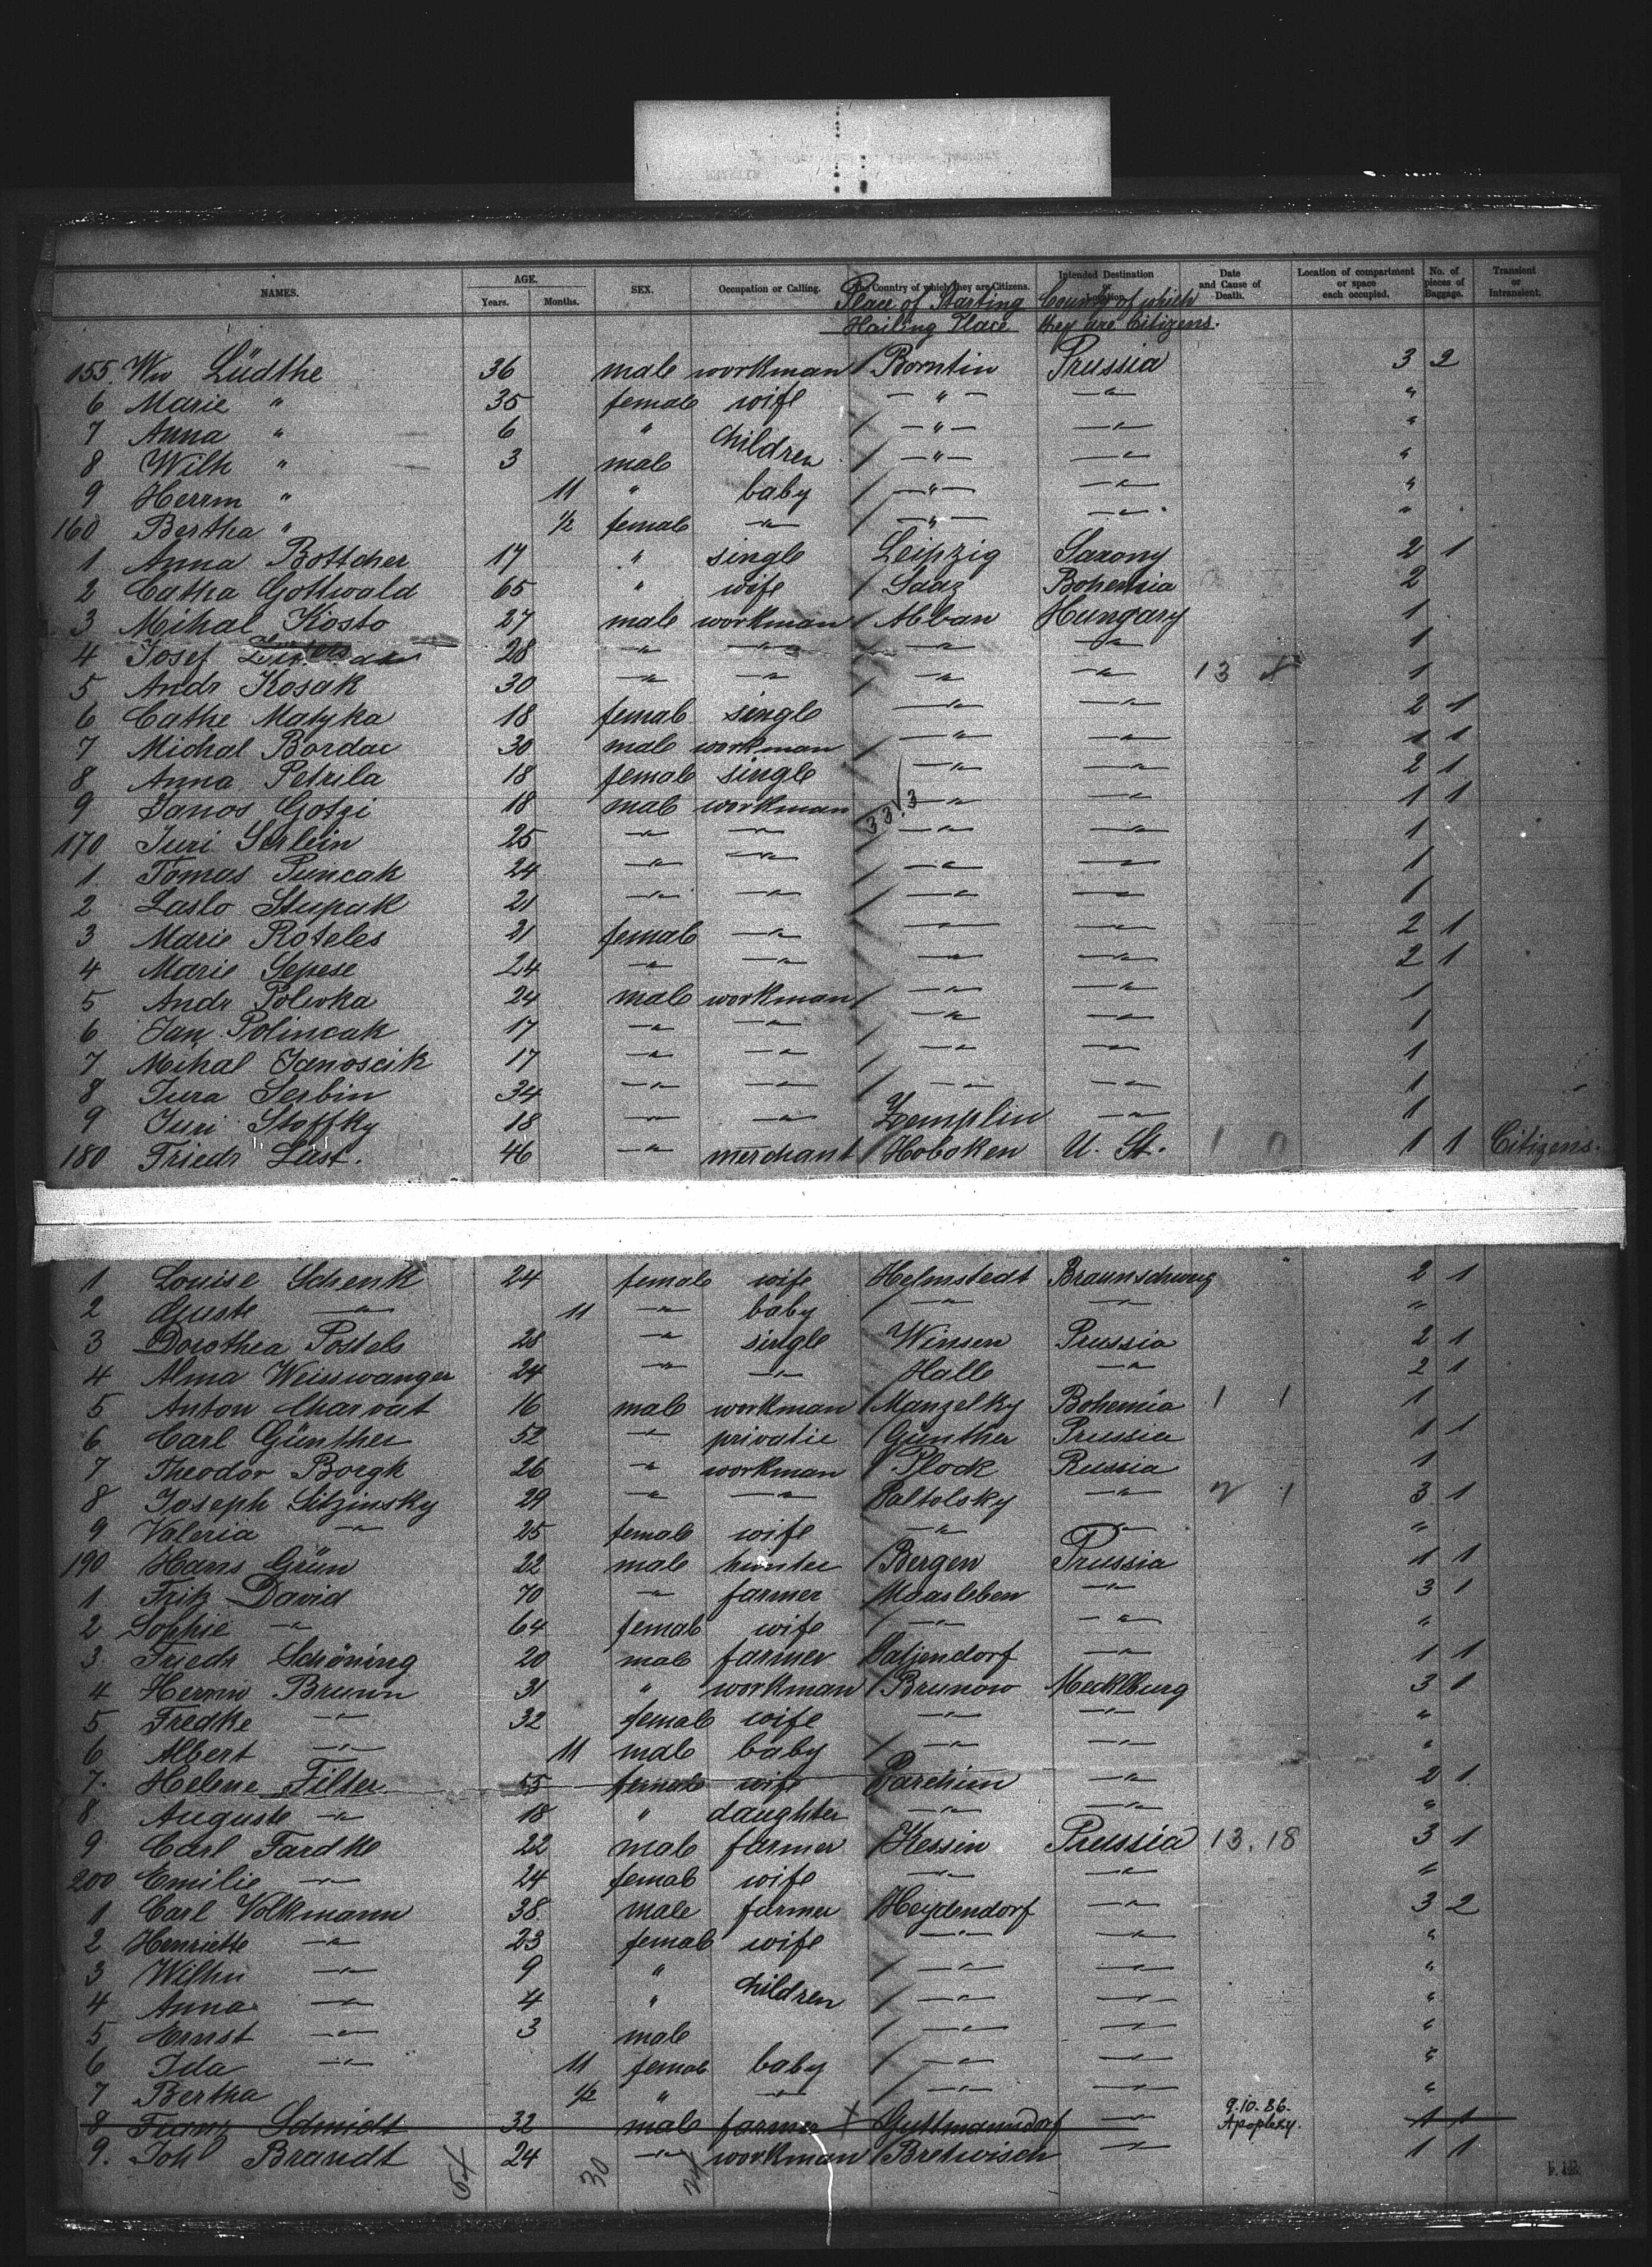 NAMES. AGE. Years. Months. SEX. Occupation or Calling. The Country of which they are Citizens. Intended Destination or Date and Cause of Death. Location of compartment or space each occupied. No. of pieces of Baggage. Transient or Intransient.
Place of Starting Country of which
Hailing Place they are Citizens.
155. Wm Lüdthe 36 male workman Borntin Prussia 3 2
6 Marie " 35 female wife — " — — " — "
7 Anna " 6 " children — " — — " — "
8 Wilh " 3 male — " — — " — "
9 Herrm " 11 " baby — " — — " — "
160 Bertha " 1/2 female — " — — " — — " — "
1 Anna Bottcher 17 " single Leipzig Saxony 2 1
2 Catha Gottwald 65 " wife Saaz Bohemia 2
3 Mihal Kosto 27 male workman Abban Hungary 1
4 Josef 28 — " — — " — — " — — " — 1
5 Andr Kosak 30 — " — — " — — " — — " — 13 8 1
6 Cathe Matyka 18 female single — " — — " — 2 1
7 Michal Bordac 30 male workman — " — — " — 1 1
8 Anna Petrila 18 female single — " — — " — 2 1
9 Janos Gotzi 18 male workman 33.3 — " — — " — 1 1
170 Juri Serlein 25 — " — — " — — " — — " — 1
1 Tomas Puncak 24 — " — — " — — " — — " — 1
2 Laslo Stupak 21 — " — — " — — " — — " — 1
3 Marie Roteles 21 female — " — — " — — " — 2 1
4 Marie Sepese 24 — " — — " — — " — — " — 2 1
5 Andr Polivka 24 male workman — " — — " — 1
6 Jan Polincak 17 — " — — " — — " — — " — 1
7 Mihal Janoscik 17 — " — — " — — " — — " — 1
8 Jura Serbin 34 — " — — " — — " — — " — 1
9 Juri Stoffky 18 — " — — " — Zemplin — " — 1
180 Friedr Last. 46 — " — merchant Hoboken U. St. 1 0 1 1 Citizens.
1 Louise Schenk 24 female wife Helmstedt Braunschweig 2 1
2 Guste — " — 11 — " — baby — " — — " — "
3 Dorothea Postels 28 — " — single Winsen Prussia 2 1
4 Alma Weisswanger 24 — " — — " — Halle — " — 2 1
5 Anton Charvat 16 male workman Manzelky Bohemia 1 1 1
6 Carl Günther 52 — " — privatie Günther Prussia 1 1
7 Theodor Borgk 26 — " — workman Plock Russia 1
8 Joseph Sitzinsky 29 — " — — " — Paltolsky — " — 2 1 3 1
9 Valeria — " — 25 female wife — " — — " — "
190 Hans Grün 22 male hunter Bergen Prussia 1 1
1 Fritz David 70 — " — farmer Maasleben — " — 3 1
2 Sophie — " — 64 female wife — " — — " — "
3 Friedr Schöning 20 male farmer Satjendorf — " — 1 1
4 Hermn Brunn 31 " workman Brunow Mecklburg 3 1
5 Fredke — " — 32 female wife — " — — " — "
6 Albert — " — 11 male baby — " — — " — "
7. Helene Filter 55 female wife Parchim — " — 2 1
8 Auguste — " — 18 " daughter — " — — " — "
9 Carl Fardke 22 male farmer Kessin Prussia 13.18 3 1
200 Emilie — " — 24 female wife — " — — " — "
1 Carl Volkmann 38 male farmer Heydendorf — " — 3 2
2 Henriette — " — 23 female wife — " — — " — "
3 Wilhn — " — 9 " children — " — — " — "
4 Anna — " — 4 " — " — — " — "
5 Ernst — " — 3 male — " — — " — "
6 Ida — " — 11 female baby — " — — " — "
7 Bertha 1/2 " — " — — " — — " — "
8 Franz Schmidt 32 male farmer x Guttmannsdorf — " — 9.10.86. Apoplexy. 1 1
9. Joh Brandt 24 — " — workman Bretwisch — " — 1 1
54 30 24